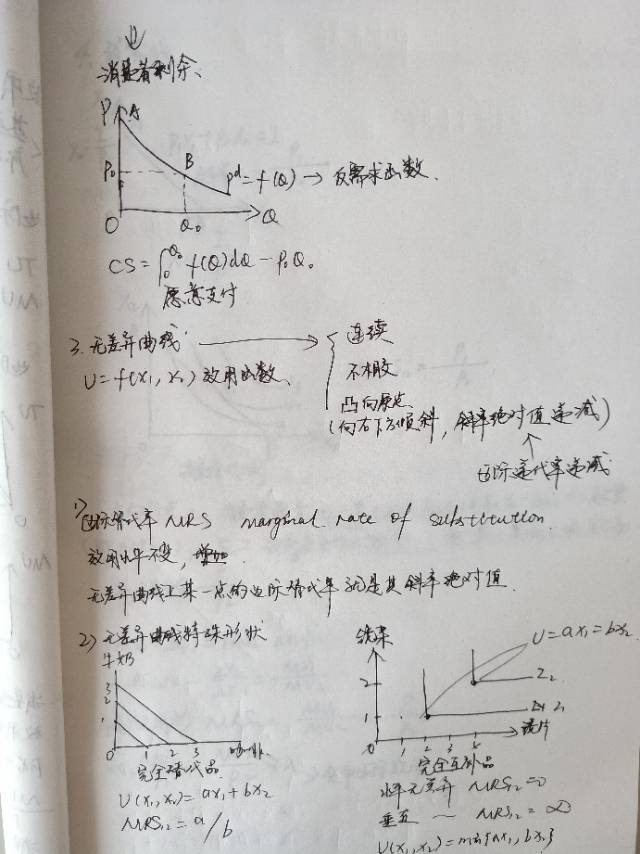 消费者剩余、
P A
P₀ B
Pᵈ=f(Q) → 反需求函数、
O Q₀ Q
CS=∫₀^Q₀ f(Q)dQ-P₀Q₀
愿意支付
3. 无差异曲线 → 连续
U=f(x₁,x₂)效用函数、 不相交
凸向原点
(向右下方倾斜,斜率绝对值递减)
↑
边际替代率递减
1) 边际替代率 MRS marginal rate of substitution
效用水平不变,
无差异曲线上某一点的边际替代率就是其斜率绝对值
2) 无差异曲线特殊形状
牛奶
3
2
1
1 2 3
完全替代品
U(x₁,x₂)=ax₁+bx₂
MRS₁₂=a/b
镜架
U=ax₁=bx₂
2 I₂
1 I₁
0 1 2 3 4 镜片
完全互补品
水平无差异 MRS₁₂=0
垂直 ~ MRS₁₂=∞
U(x₁,x₂)=min{ax₁,bx₂}